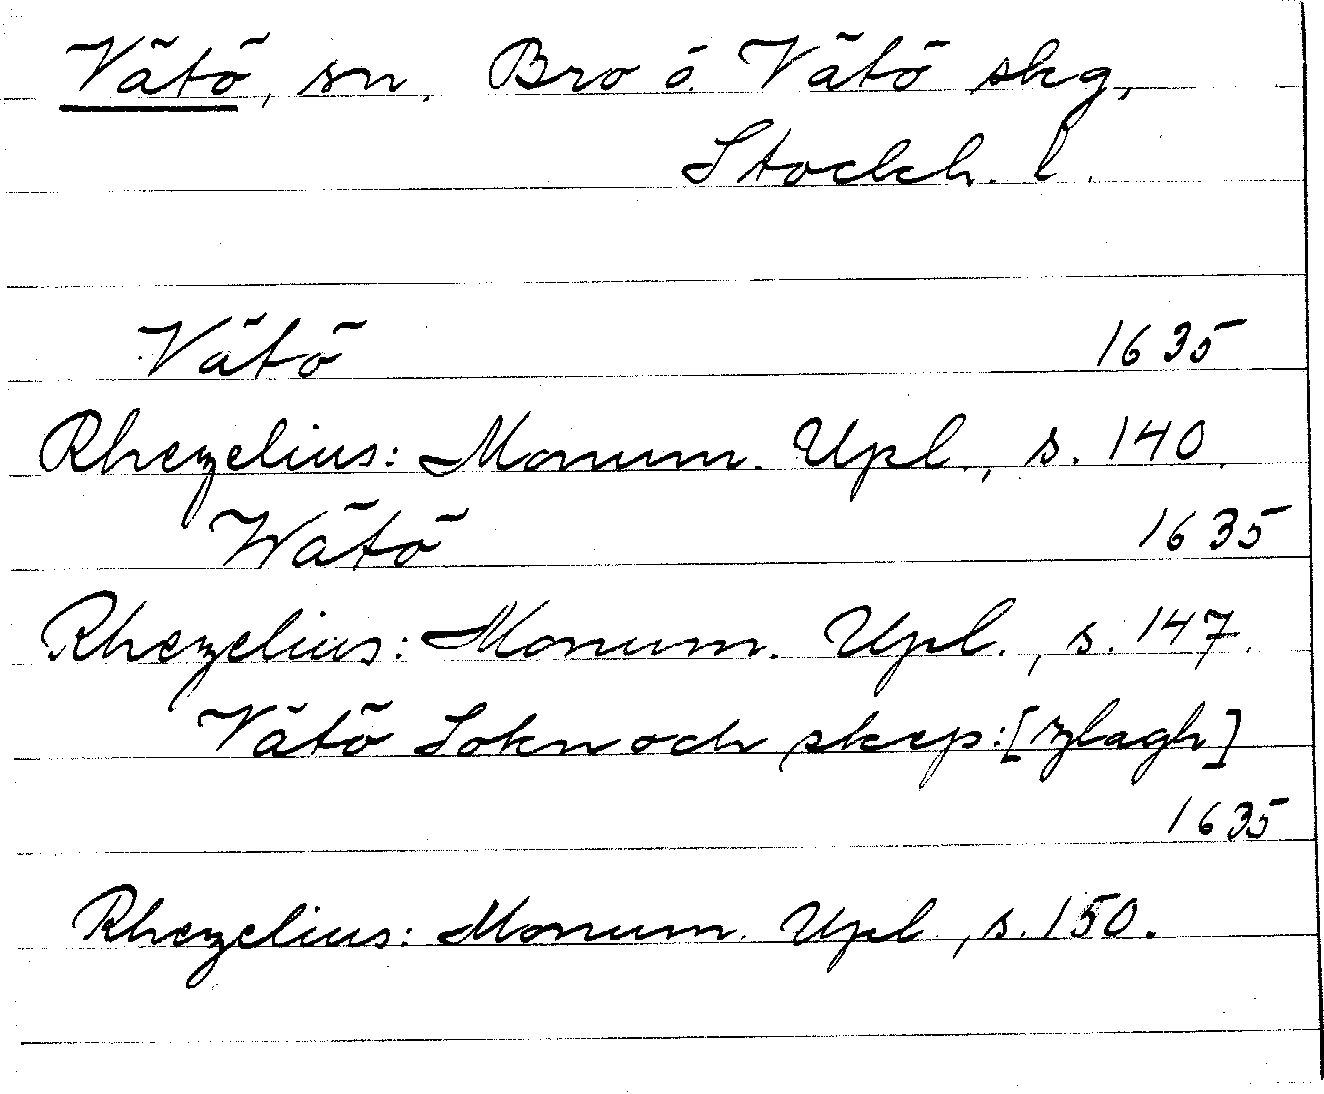 Vätö, sn. Bro o. Vätö skg,
Stockh. l.
Vätö 1635
Rhezelius: Monum. Upl., s. 140.
Wätö 1635
Rhezelius: Monum. Upl., s. 147.
Vätö Sokn och skep:[zlagh]
1635
Rhezelius: Monum. Upl., s. 150.